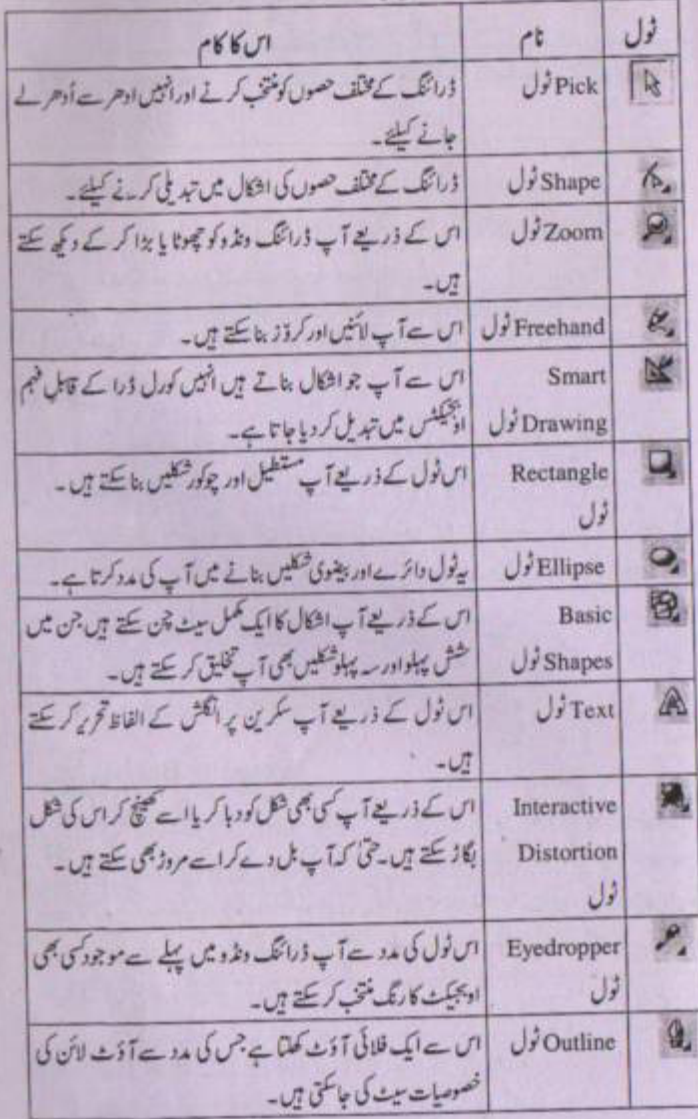 ٹول نام اس کا کام
Pick ٹول ڈرائنگ کے مختلف حصوں کو منتخب کرنے اور انہیں ادھر سے اُدھر لے
جانے کیلئے۔
Shape ٹول ڈرائنگ کے مختلف حصوں کی اشکال میں تبدیلی کرنے کیلئے۔
Zoom ٹول اس کے ذریعے آپ ڈرائنگ ونڈو کو چھوٹا یا بڑا کر کے دیکھ سکتے
ہیں۔
Freehand ٹول اس سے آپ لائنیں اور کروّز بنا سکتے ہیں۔
Smart اس سے آپ جو اشکال بناتے ہیں انہیں کورل ڈرا کے قابلِ فہم
Drawing ٹول اوبجیکٹس میں تبدیل کر دیا جاتا ہے۔
Rectangle اس ٹول کے ذریعے آپ مستطیل اور چوکور شکلیں بنا سکتے ہیں۔
ٹول
Ellipse ٹول یہ ٹول دائرے اور بیضوی شکلیں بنانے میں آپ کی مدد کرتا ہے۔
Basic اس کے ذریعے آپ اشکال کا ایک مکمل سیٹ چن سکتے ہیں جن میں
Shapes ٹول شش پہلو اور سہ پہلو شکلیں بھی آپ تخلیق کر سکتے ہیں۔
Text ٹول اس ٹول کے ذریعے آپ سکرین پر انگلش کے الفاظ تحریر کر سکتے
ہیں۔
Interactive اس کے ذریعے آپ کسی بھی شکل کو دبا کر یا اسے کھینچ کر اس کی شکل
Distortion بگاڑ سکتے ہیں۔ حتیٰ کہ آپ بل دے کر اسے مروڑ بھی سکتے ہیں۔
ٹول
Eyedropper اس ٹول کی مدد سے آپ ڈرائنگ ونڈو میں پہلے سے موجود کسی بھی
ٹول اوبجیکٹ کا رنگ منتخب کر سکتے ہیں۔
Outline ٹول اس سے ایک فلائی آؤٹ کھلتا ہے جس کی مدد سے آؤٹ لائن کی
خصوصیات سیٹ کی جا سکتی ہیں۔